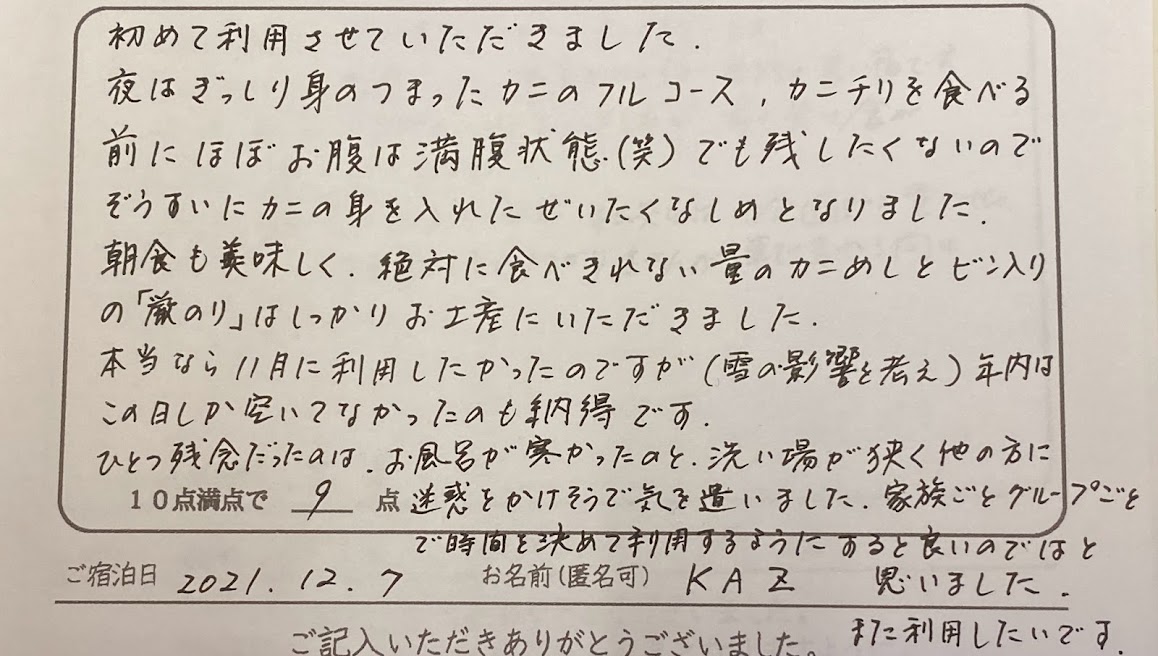 初めて利用させていただきました.
夜はぎっしり身のつまったカニのフルコース,カニチリを食べる
前にほぼお腹は満腹状態.(笑)でも残したくないので
ぞうすいにカニの身を入れたぜいたくなしめとなりました.
朝食も美味しく.絶対に食べきれない量のカニめしとビン入り
の「厳のり」はしっかりお土産にいただきました.
本当なら11月に利用したかったのですが(雪の影響を考え)年内は
この日しか空いてなかったのも納得です.
ひとつ残念だったのは.お風呂が寒かったのと.洗い場が狭く他の方に
10点満点で 9 点 迷惑をかけそうで気を遣いました.家族ごとグループごと
で時間を決めて利用するようにすると良いのではと
ご宿泊日 2021.12.7 お名前(匿名可) KAZ 思いました.
ご記入いただきありがとうございました。 また利用したいです.